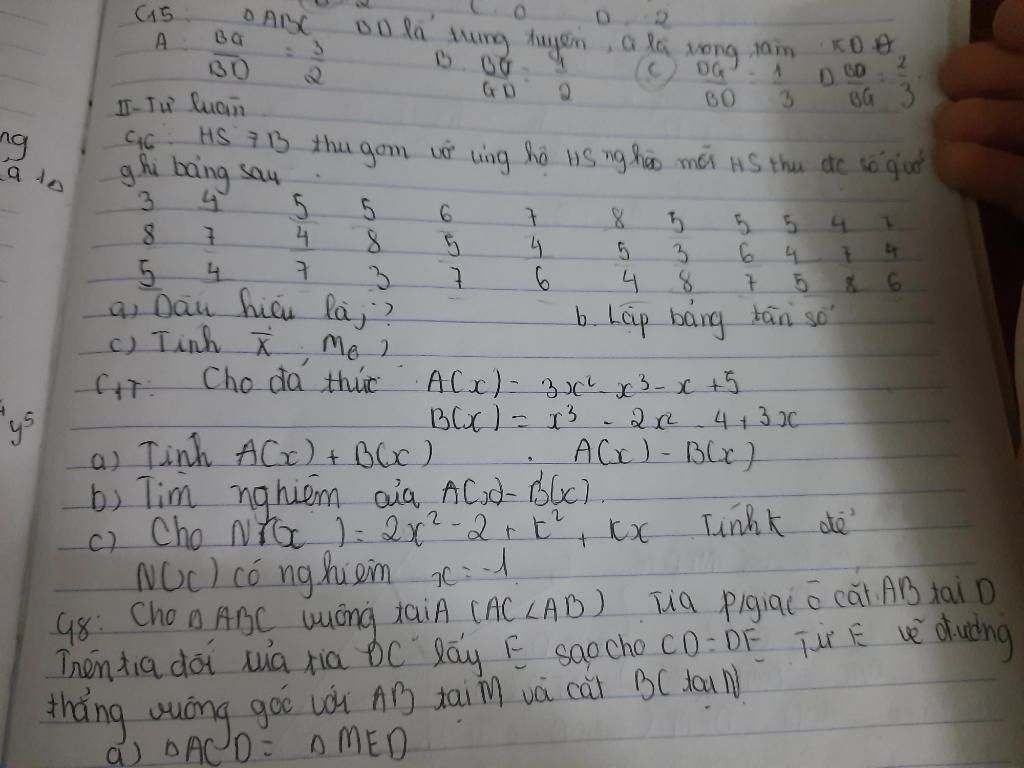 C 0 D. 2
C15: ΔABC BD là trung tuyến, G là trọng tâm KĐ
A. BG/BD = 3/2 B. BG/GD = 1/2 C DG/BD = 1/3 D BD/BG = 2/3
II-Tự luận
C16: HS 7B thu gom vở ủng hộ HS nghèo mỗi HS thu đc số q vở
ghi bảng sau
3 4 5 5 6 7 8 5 5 5 4 7
8 7 4 8 5 4 5 3 6 4 7 4
5 4 7 3 7 6 4 8 7 5 8 6
a, Dấu hiệu là j? b. Lập bảng tần số
c) Tính x̄, M₀?
C17: Cho đa thức A(x) = 3x² - x³ - x + 5
B(x) = x³ - 2x² - 4 + 3x
a) Tính A(x) + B(x) . A(x) - B(x)
b) Tìm nghiệm của A(x) - B(x).
c) Cho N(x) = 2x² - 2 + k² + kx Tính k để
N(x) có nghiệm x = -1.
C18: Cho ΔABC vuông tại A (AC < AB) Tia p/giác C cắt AB tại D
Trên tia đối của tia DC lấy E sao cho CD = DE Từ E vẽ đường
thẳng vuông góc với AB tại M và cắt BC tại N
a) ΔACD = ΔMED
ng
10
y⁵